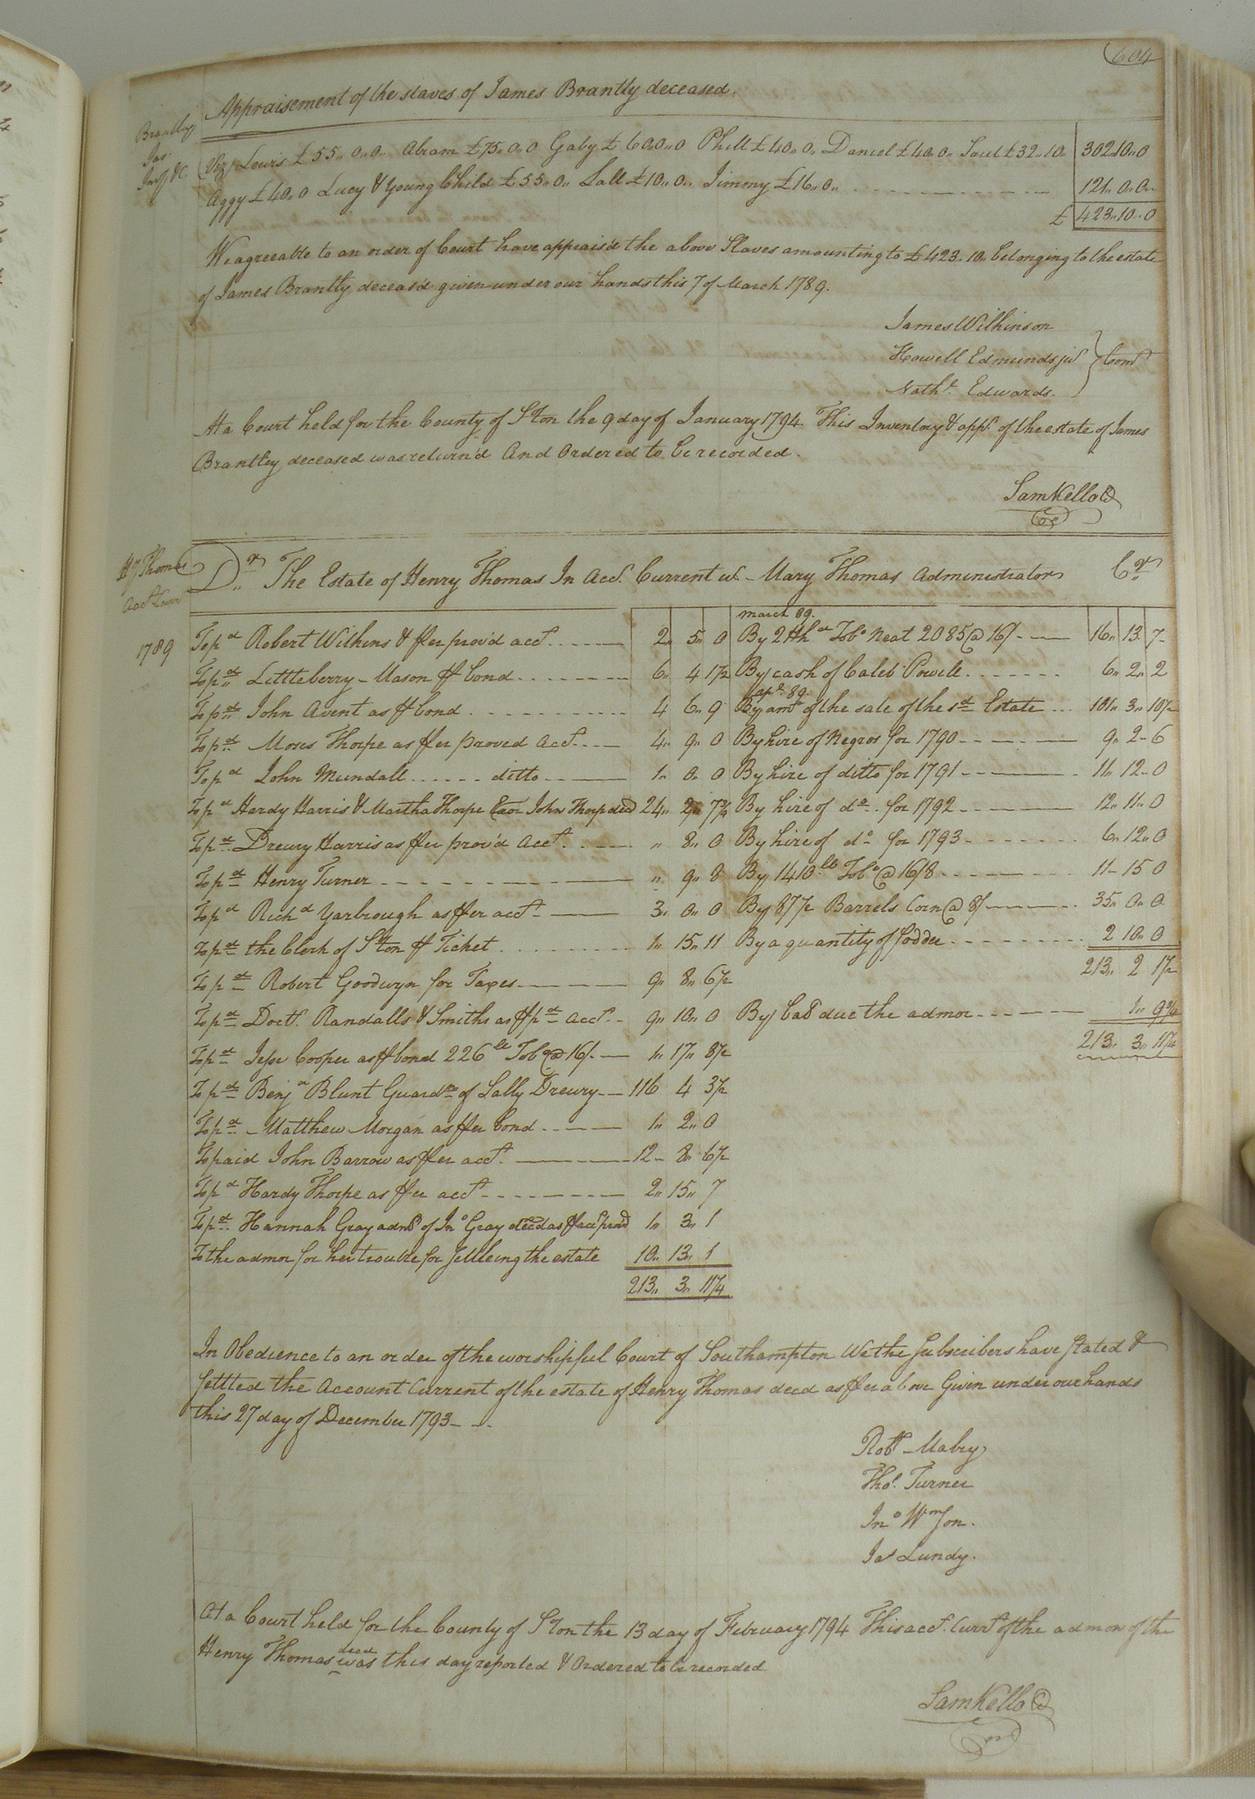 604
Appraisement of the slaves of James Brantly deceased.
Brantly
Jas
(Viz) Lewis £55.. 0.. 0.. Abram £75.. 0.. 0 Gaby £60.. 0.. 0 Phill £40.. 0.. Daniel £40.. 0.. Saul £32.. 10. 302.. 10.. 0
Aggy £40.. 0 Lucy & Young Child £55.. 0.. Sall £10.. 0.. Jimmy £16.. 0.. 121.. 0.. 0..
£ 423.. 10.. 0
We agreeable to an order of Court have appraisd the above Slaves amounting to £423.. 10.. belonging to the estate
of James Brantly deceasd given under our hands this 7 of March 1789.
James Wilkinson
Howell Edmunds jur } Comrs
Nathl. Edwards.
At a Court held for the County of S.ton the 9 day of January 1794 This Inventory & appt. of the estate of James
Brantley deceased was return'd And Ordered to be recorded.
Sam Kello CC
Hy Thomas
Acct Curr
Dr. The Estate of Henry Thomas In Acct. Current wt. Mary Thomas Administrator Cr
1789
March 89.
To pd Robert Wilkins & ⅌er prov'd acct. 2.. 5.. 0 By 2 Hhds Tobo. Neat 2085 @ 16/ 16.. 13.. 7
To pd. Littleberry Mason ⅌ bond 6.. 4 1/2 By cash of Caleb Powell 6.. 2.. 2
apl. 89.
To pd. John Avent as ⅌ bond 4 6.. 9 By amt of the sale of the sd. Estate 101.. 3.. 10 1/2
To pd. Moses Thorpe as ⅌er proved Acct. 4.. 9.. 0 By hire of Negros for 1790 9.. 2.. 6
To pd John Mundall ditto 1.. 0.. 0 By hire of ditto for 1791 11.. 12.. 0
To pd Hardy Harris & Martha Thorpe Exor John Thorp decd 24.. 2.. 7 3/4 By hire of do. for 1792 12.. 11.. 0
To pd. Drewry Harris as ⅌er prov'd Acct. .. 8.. 0 By hire of do. for 1793 6.. 12.. 0
To pd. Henry Turner .. 9.. 8 By 1410 lb Tobo. @ 16/8 11.. 15 0
To pd Richd Yarbrough as ⅌er acct. 3.. 0.. 0 By 87 1/2 Barrels Corn @ 8/ 35.. 0.. 0
To pd. the Clerk of S.ton ⅌ Ticket 1.. 15.. 11 By a quantity of Fodder 2 10.. 0
213.. 2 1 1/2
To pd. Robert Goodwyn for Taxes 9.. 8.. 6 1/2
To pd. Doctr. Randalls & Smiths as ⅌ pd. acct. 9.. 10.. 0 By bal due the admor 1.. 9 3/4
213.. 3.. 11 1/4
To pd. Jesse Cooper as ⅌ bond 226 lb Tobo @ 16/ 1.. 17.. 8 1/2
To pd. Benja Blunt Guardn. of Sally Drewry 116 4 3 1/2
To pd. Matthew Morgan as ⅌er bond 1.. 2.. 0
To paid John Barrow as ⅌er acct. 12.. 8.. 6 1/2
To pd Hardy Thorpe as ⅌er acct. 2.. 15.. 7
To pd. Hannah Gray adms of Jno Gray decd as ⅌ acct provd 1.. 3.. 1
To the admor for her trouble for settleing the estate 10.. 13.. 1
213.. 3.. 11 1/4
In Obedience to an order of the worshipful Court of Southampton We the Subscribers have Stated &
settled the Account Current of the estate of Henry Thomas decd as ⅌er above Given under our hands
this 27 day of December 1793
Robt. Mabry
Thos. Turner
Jno Wmson.
Jas Lundy.
At a Court held for the County of S.ton the 13 day of February 1794 This acct. Currt. of the admon of the
decd
Henry Thomas was this day reported & Ordered to be recorded
Sam Kello CC